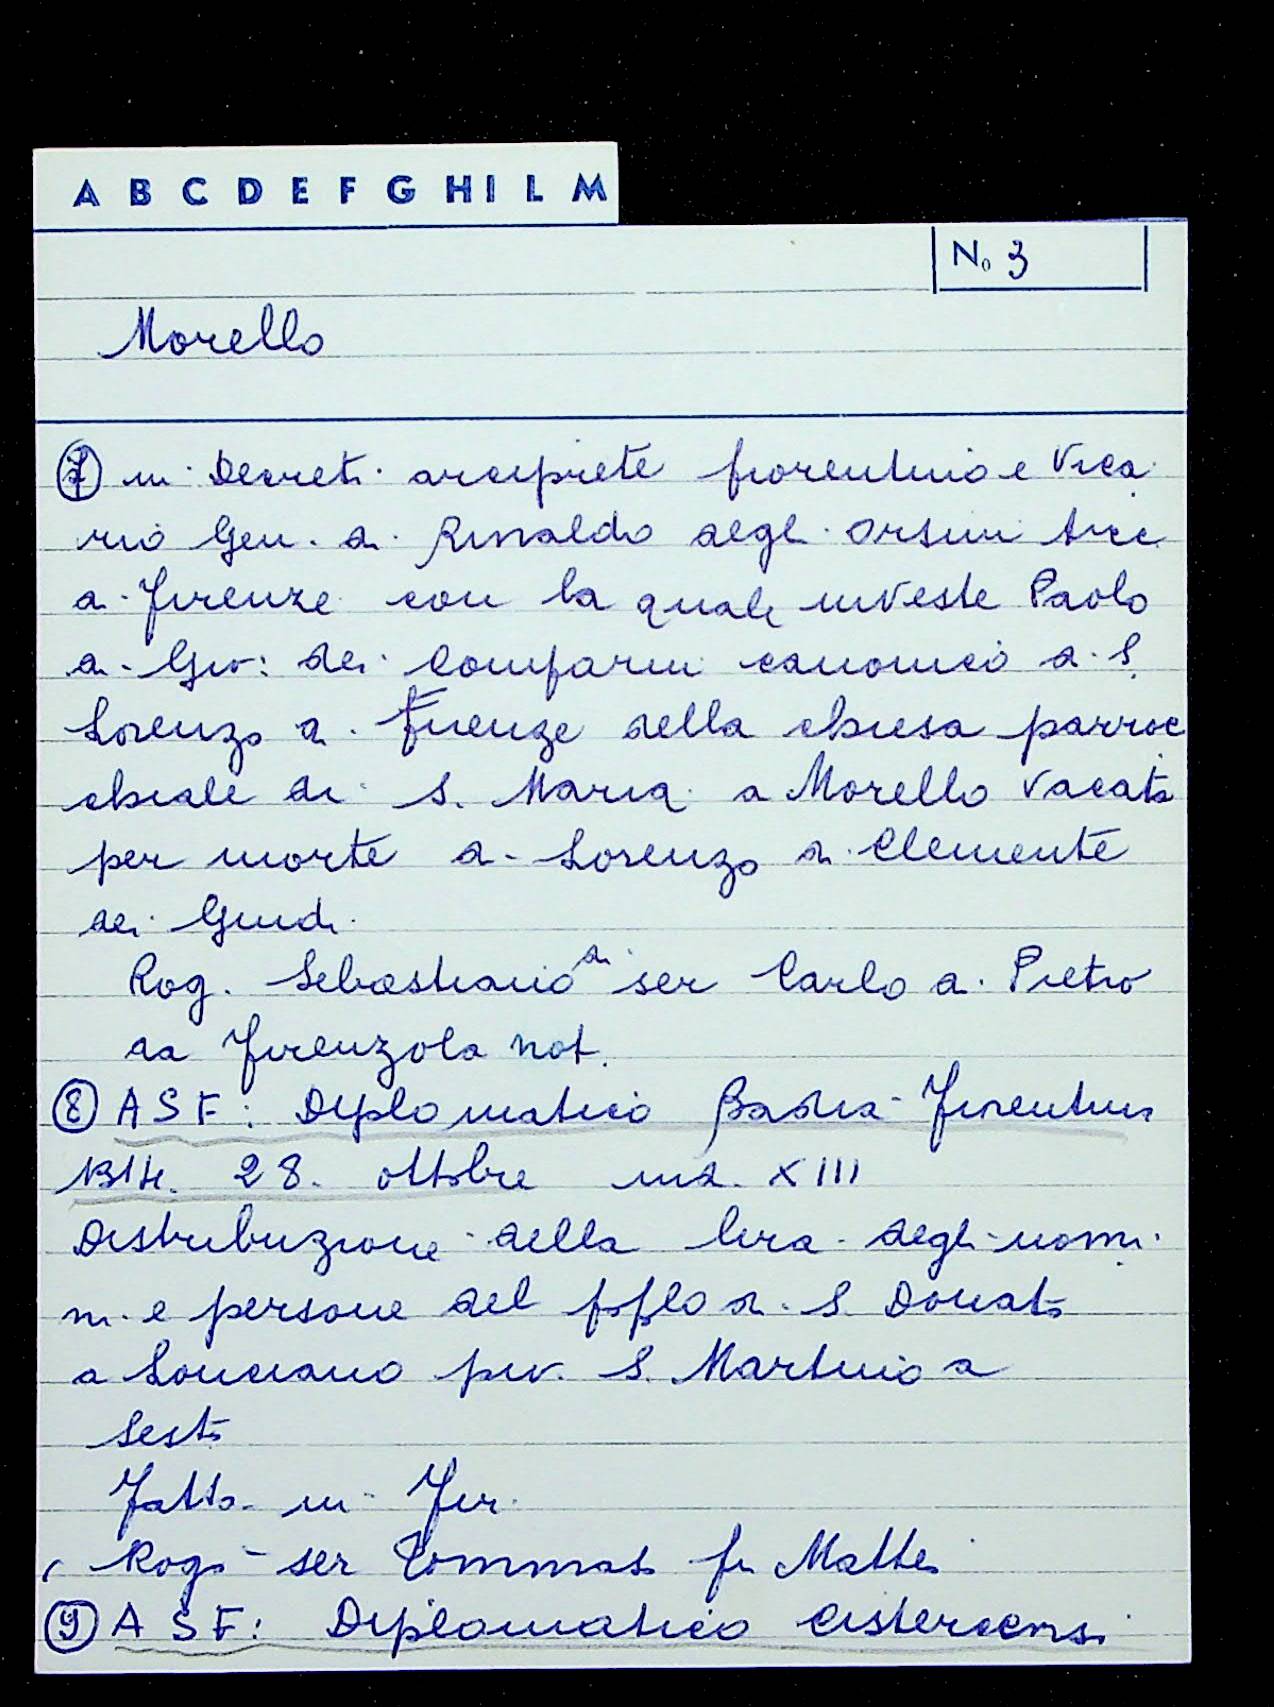 A B C D E F G H I L M
No 3
Morello
7 in Decreti arciprete fiorentino e Vica
rio Gen. di Rinaldo degli Orsini Arc.
di Firenze con la quale investe Paolo
di Gio: dei Comparini canonico di S.
Lorenzo di Firenze della chiesa parroc
chiale di S. Maria a Morello vacata
per morte di Lorenzo di Clemente
dei Guidi.
Rog. Sebastiano di ser Carlo di Pietro
da Firenzola not.
8 ASF: Diplomatico Badia Fiorentina
1314. 28. ottobre ind. XIII
Distribuzione della lira degli uomi
ni e persone del poplo di S. Donato
a Lonciano piv. S. Martino a
Sesto
Fatto in Fir.
Rog. ser Tommaso fu Mattei
9 ASF: Diplomatico Cistercensi